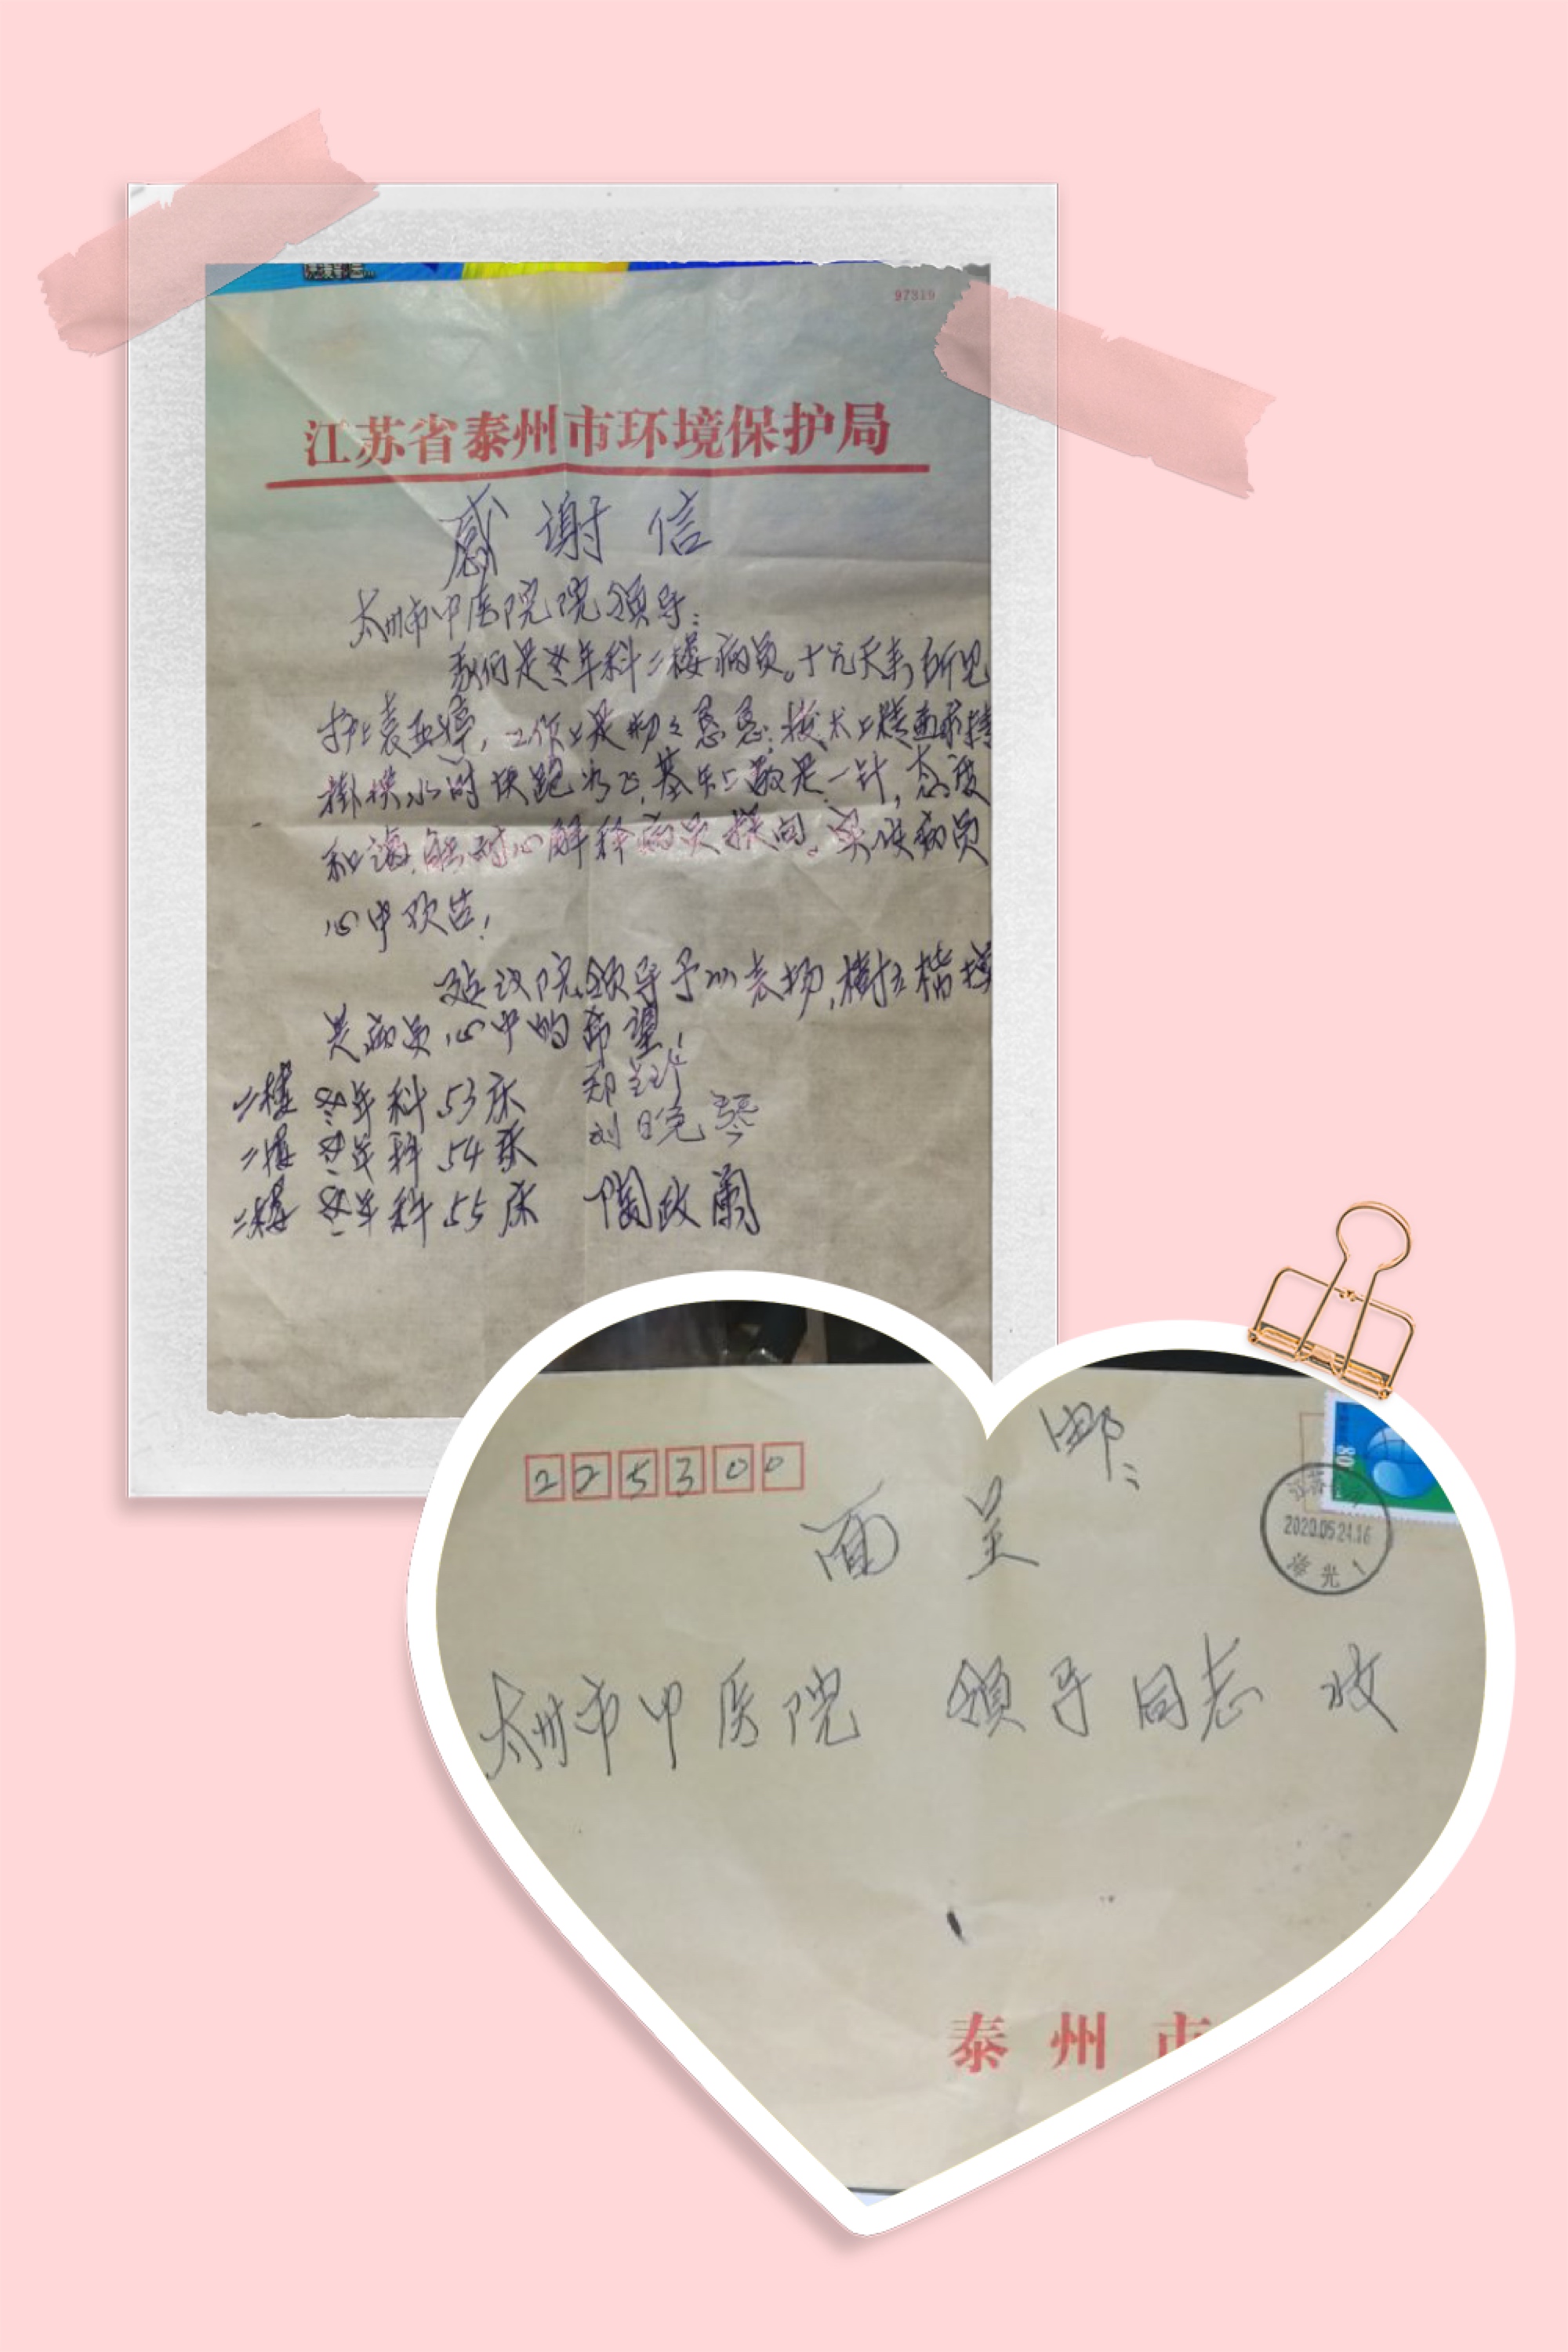 97319
江苏省泰州市环境保护局
感谢信
太州市中医院院领导:
我们是老年科二楼病员。十几天来所见
护士袁亚婷,工作上是勤勤恳恳,技术上精益求精
掛换水时快跑如飞,基本上都是一针,态度
和谐,能耐心解释病员探问。实使病员
心中欢告!
建议院领导予以表扬,樹立楷模
是病员心中的希望!
二楼 老年科53床 郑
二楼 老年科54床 刘晓琴
二楼 老年科55床 陶政蘭
邮:
225300
面呈
80
2020.05.24.16
太州市中医院 领导同志 收
泰州市